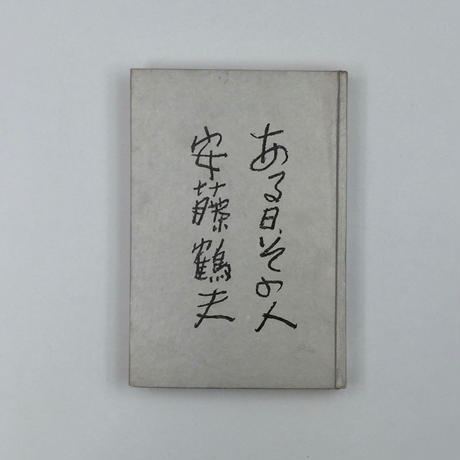 ある日、その人
安藤鶴夫